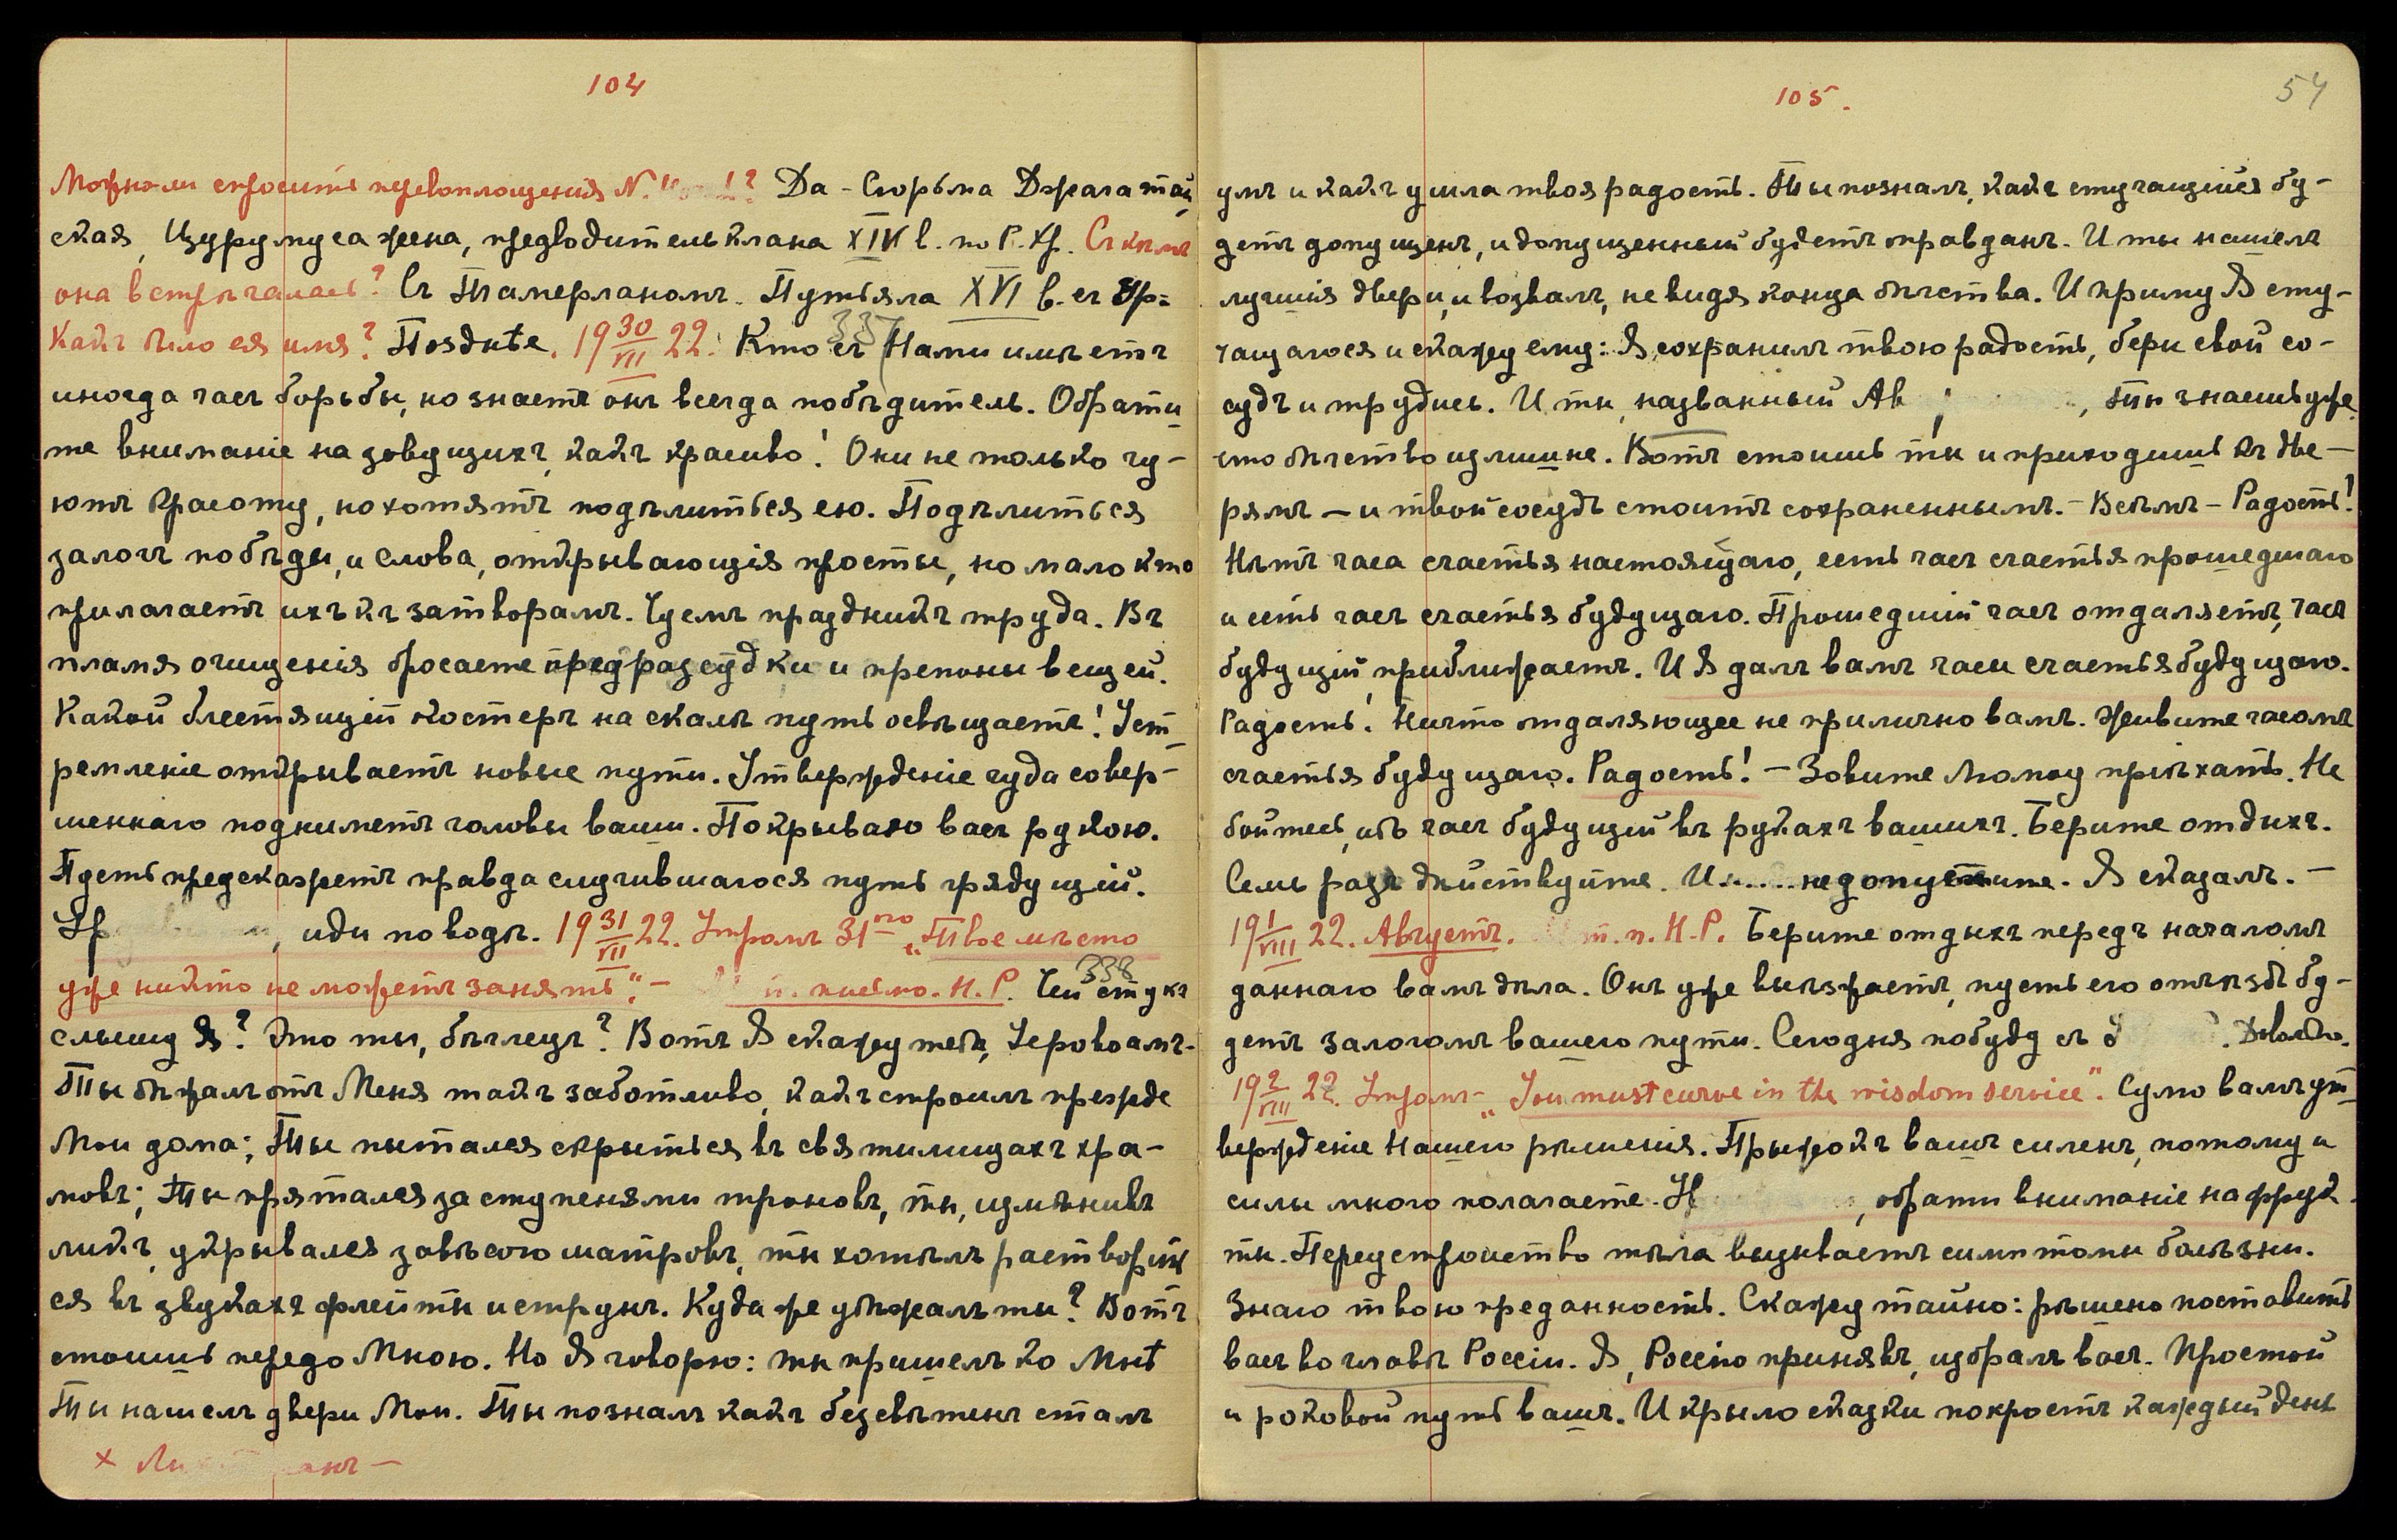 104
Можноли спросить перевоплощенія N.
Да – Сюрьма Джагатай
ская, Цурумуса жена, предводитель клана XIV в. по Р. Хр. Съ кѣмъ
она встрѣчалась? Съ Тамерланомъ. Путьяла XVI в. ст. Ур=
Какъ было ея имя? Позднѣе. 19 30/VII 22. 337 Кто съ Нами имѣетъ
иногда часъ борьбы, но знаетъ онъ всегда побѣдитель. Обрати
те вниманіе на зовущихъ, какъ красиво! Они не только чу-
ютъ красоту, но хотятъ подѣлиться ею. Подѣлиться
залогъ побѣды, и слова, открывающія просты, но мало кто
прилагаетъ ихъ къ затворамъ. Чуемъ праздникъ труда. Въ
пламя очищенія бросаете предразсудки и препоны вещей.
Какой блестящій костеръ на скалѣ путь освѣщаетъ! Уст_
ремленіе открываетъ новые пути. Утвержденіе чуда совер-
шеннаго подниметъ головы ваши. Покрываю васъ рукою.
Пусть предскажетъ правда случившагося путь грядущій.
Ур , иди по водѣ. 19 31/VII 22. Утромъ 31го „Твое мѣсто
уже никто не можетъ занять“. – п. письмо. Н. Р. 338 Чей стукъ
слышу Я? Это ты, бѣглецъ? Вотъ Я скажу тебѣ, Іеровоамъ.
Ты бѣжалъ отъ Меня такъ заботливо, какъ строилъ прежде
Мои дома; Ты пытался скрыться въ святилищахъ хра-
мовъ; Ты прятался за ступенями троновъ, ты, измѣнивъ
ликъ, укрывался завѣсою шатровъ, ты хотѣлъ растворить
ся въ звукахъ флейты и струнъ. Куда же убѣжалъ ты? Вотъ
стоишь передо Мною. Но Я говорю: ты пришелъ ко Мнѣ
Ты нашелъ двери Мои. Ты позналъ какъ безсвѣтенъ сталъ
x
105.
54
умъ и какъ ушла твоя радость. Ты позналъ, какъ стучащійся бу-
детъ допущенъ, и допущенный будетъ оправданъ. И ты нашелъ
лучшія двери, и воззвалъ, не видя конца бѣгства. И приму Я сту-
чащагося и скажу ему: Я сохранилъ твою радость, бери свой со-
судъ и трудись. И ты, названный Ав , ты знаешь уже
что бѣгство излишне. Вотъ стоишь ты и приходишь къ две-
рямъ – и твой сосудъ стоитъ сохраненнымъ. – Всѣмъ – Радость!
Нѣтъ часа счастья настоящаго, есть часъ счастья прошедшаго
и есть часъ счастья будущаго. Прошедшій часъ отдаляетъ, часъ
будущій приближаетъ. И Я далъ вамъ часы счастья будущаго.
Радость! Ничто отдаляющее не прилично вамъ. Живите часомъ
счастья будущаго. Радость! – Зовите Мотту пріѣхать. Не
бойтесь, ибо часъ будущій въ рукахъ вашихъ. Берите отдыхъ.
Семь разъ дѣйствуйте. И..... недопустите. Я сказалъ. –
19 1/VIII 22. Августъ. т. п. Н. Р. Берите отдыхъ передъ началомъ
даннаго вамъ дѣла. Онъ уже выѣзжаетъ, пусть его отъѣздъ бу-
детъ залогомъ вашего пути. Сегодня побуду съ . Довольно.
19 2/VIII 22. Утромъ – „You must curve in the wisdom service“. Сумо вамъ ут_
вержденіе Нашего рѣшенія. Прыжокъ вашъ силенъ, потому и
силы много полагаете. Н , обрати вниманіе на фрук
ты. Переустройство тѣла вызываетъ симптомы болѣзни.
Знаю твою преданность. Скажу тайно: рѣшено поставить
васъ во главѣ Россіи. Я, Россію принявъ, избралъ васъ. Простой
и роковой путь вашъ. И крыло сказки покроетъ каждый день